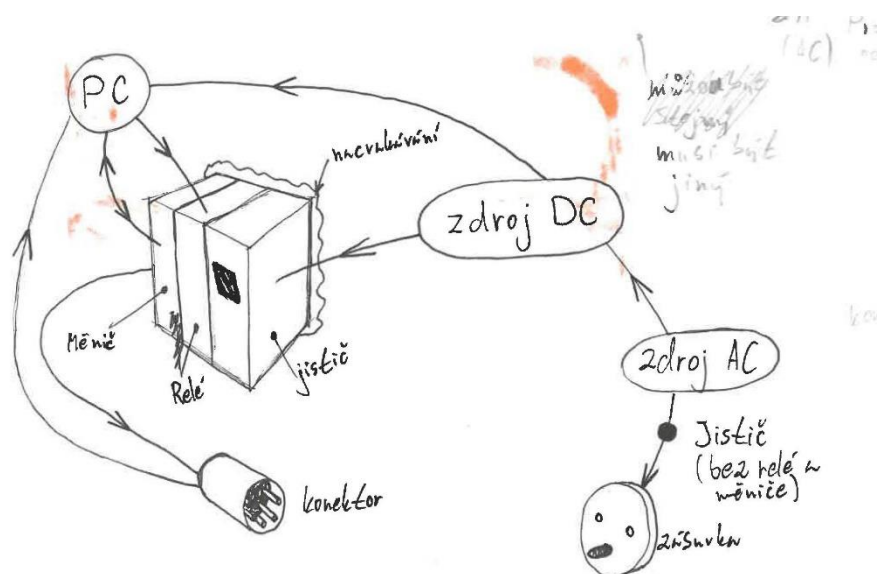 (AC)
PC
nacvakávání
musí být
jiný
zdroj DC
Měnič
Relé
jistič
zdroj AC
Jistič
(bez relé a
měniče)
konektor
zásuvka